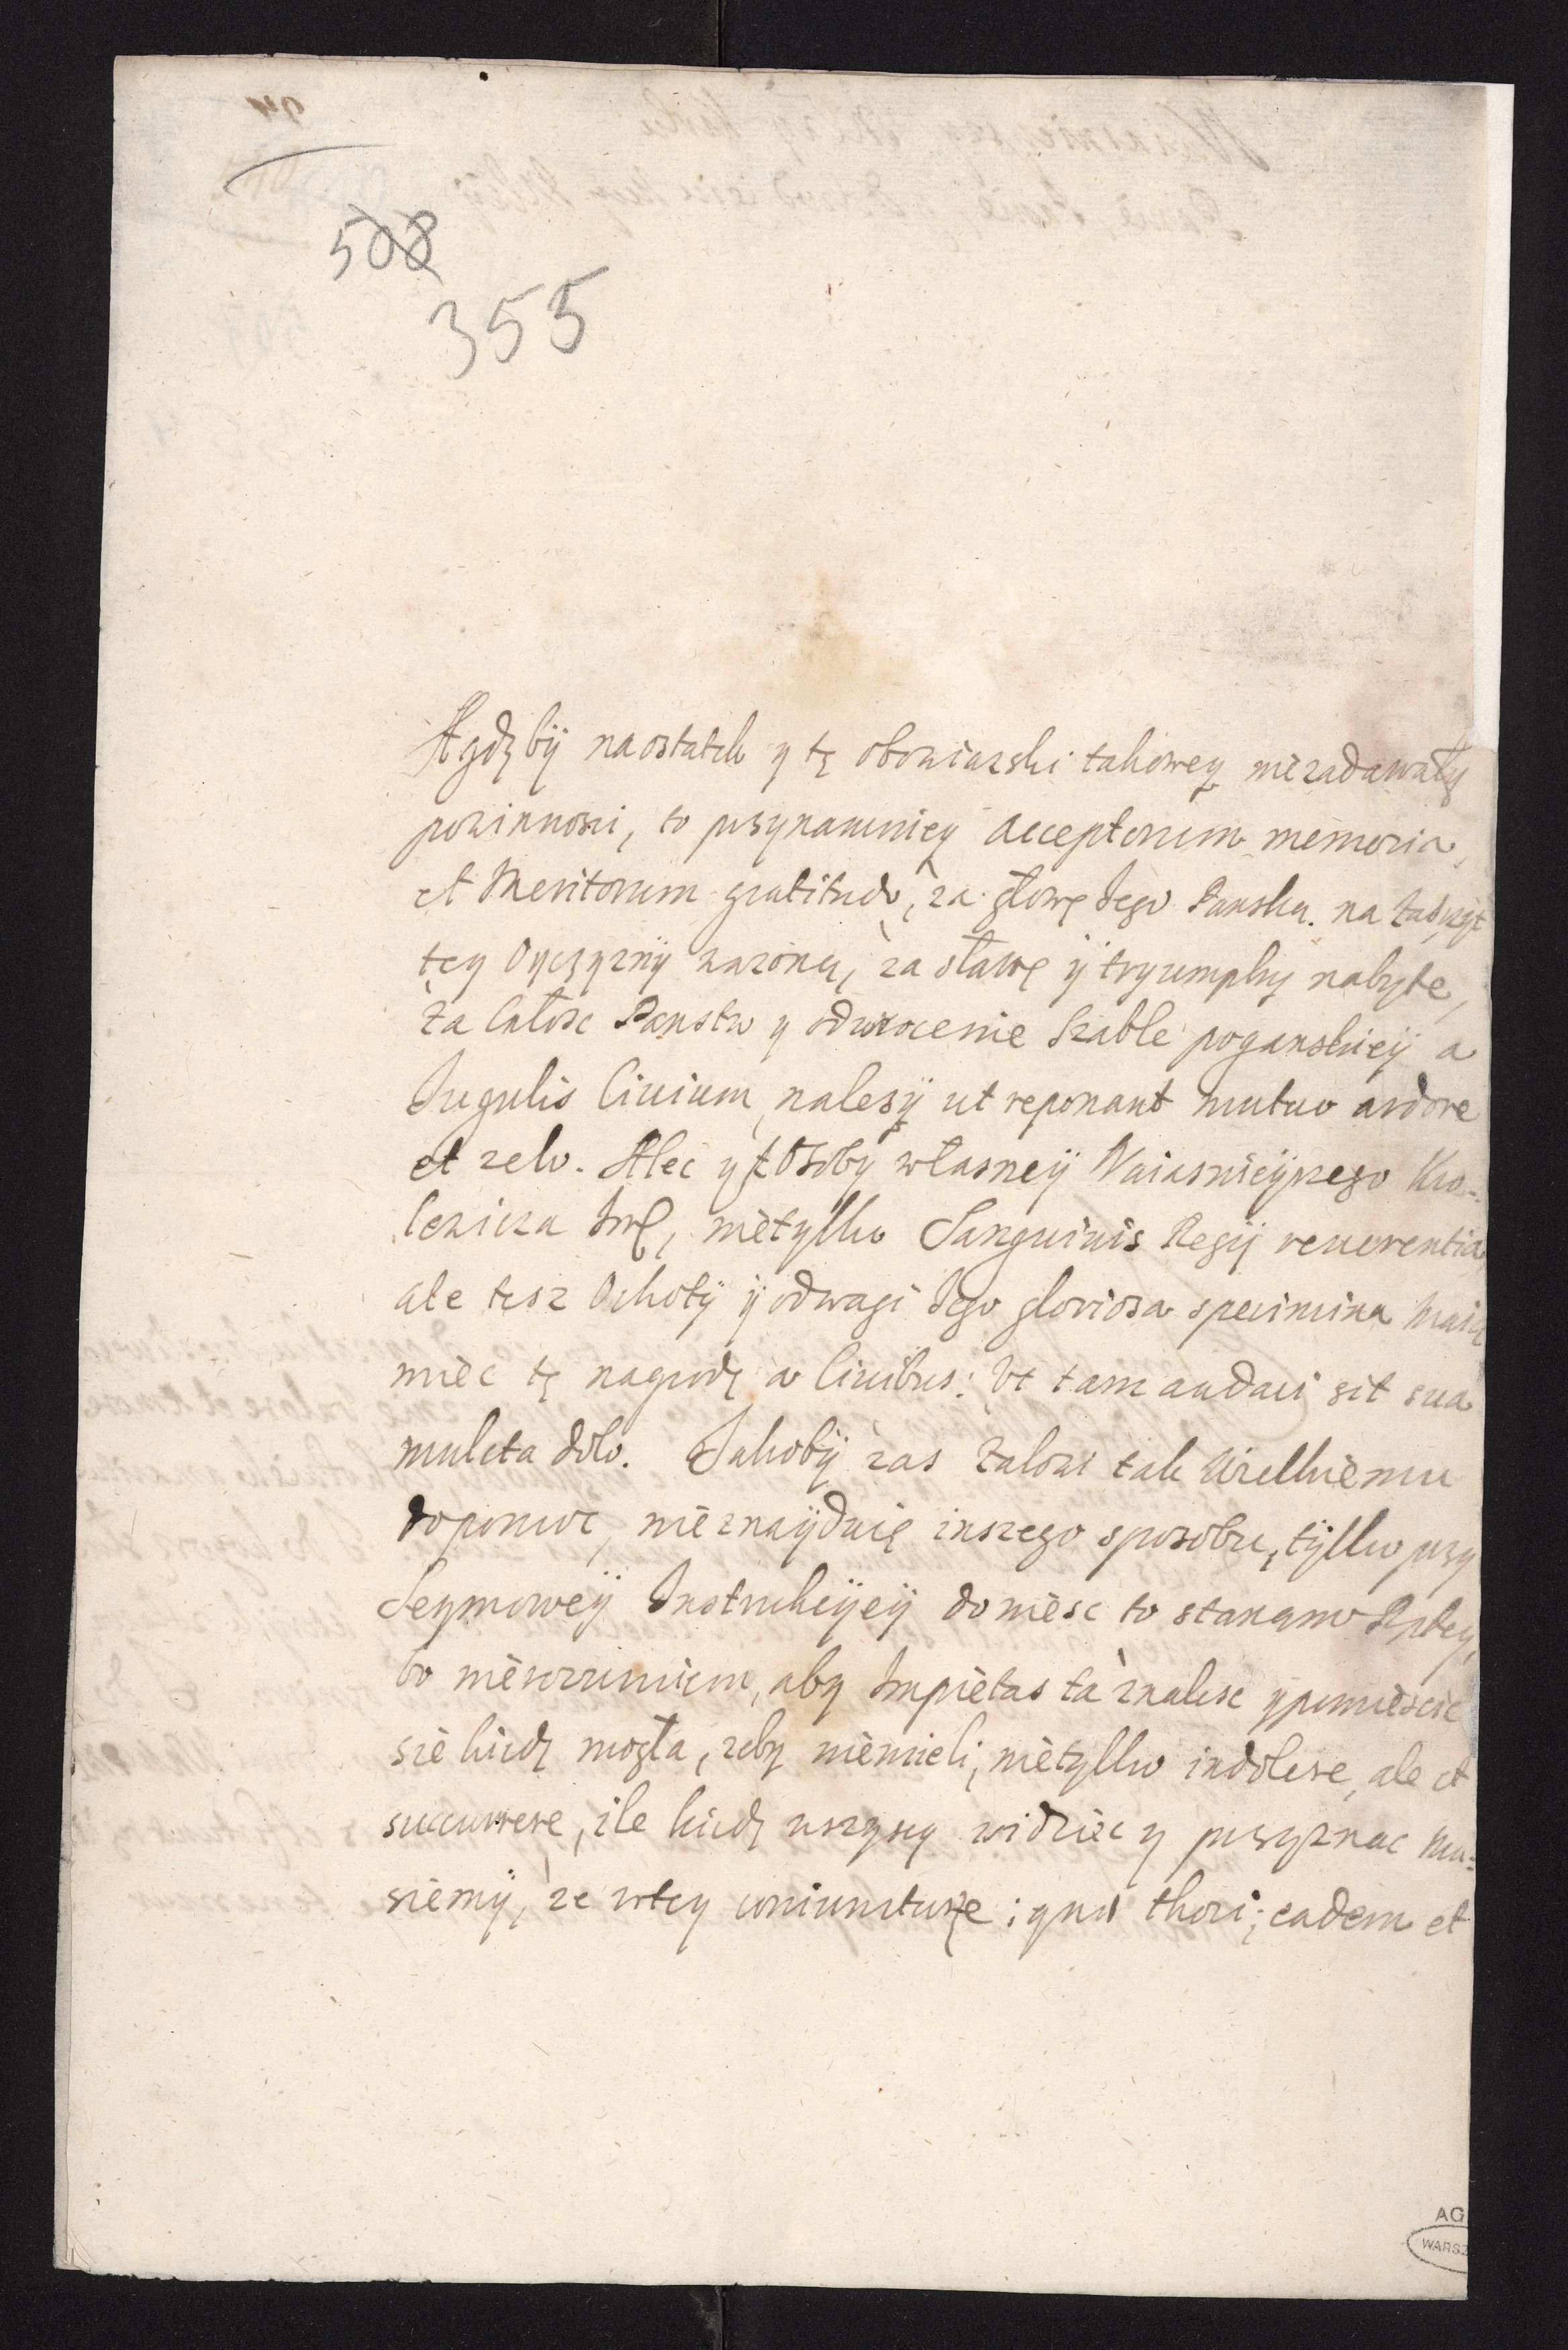 508
355
A gdyby naostatek y tę obowiązki takowey niezadawały
powinnosci, to przynamniey acceptorum memoria,
et meritorum gratitudo, za głowę Jego Panską na zaszczyt
tey Oyczyzny ważoną, za sławę ÿ tryumphy nabyte,
za całosc Panstw y odwrocenie szable poganskieÿ a
Jugulis Ciuium, nalezÿ ut reponant mutuo ardore
et zelo. Alec y z Osoby własneÿ Naiasnieÿszego Kro-
lewicza Jmć, nietylko Sanguinis Regÿ reuerentia
ale tesz Ochotÿ ÿ odwagi Jego gloriosa specimina maią
miec tę nagrodę a Ciuibus: Ut tam audaci sit sua
mulcta dolo. Jakobÿ zas zalowi tak Wielkiemu
dopomoc, nieznaÿduię inszego sposobu, tÿlko przy
Seymoweÿ Instrukcÿeÿ doniesc to stanom Rptey,
bo nierozumiem, aby Impietas ta znalesc y pomiescic
sie kiedy mogła, zeby niemieli, nietylko indolere, ale et
succurrere, ile kiedy wszyscy widziec y przyznac mu-
siemÿ, ze wtey coniunkturze; qua thori; eadem et
AG
WARSZ